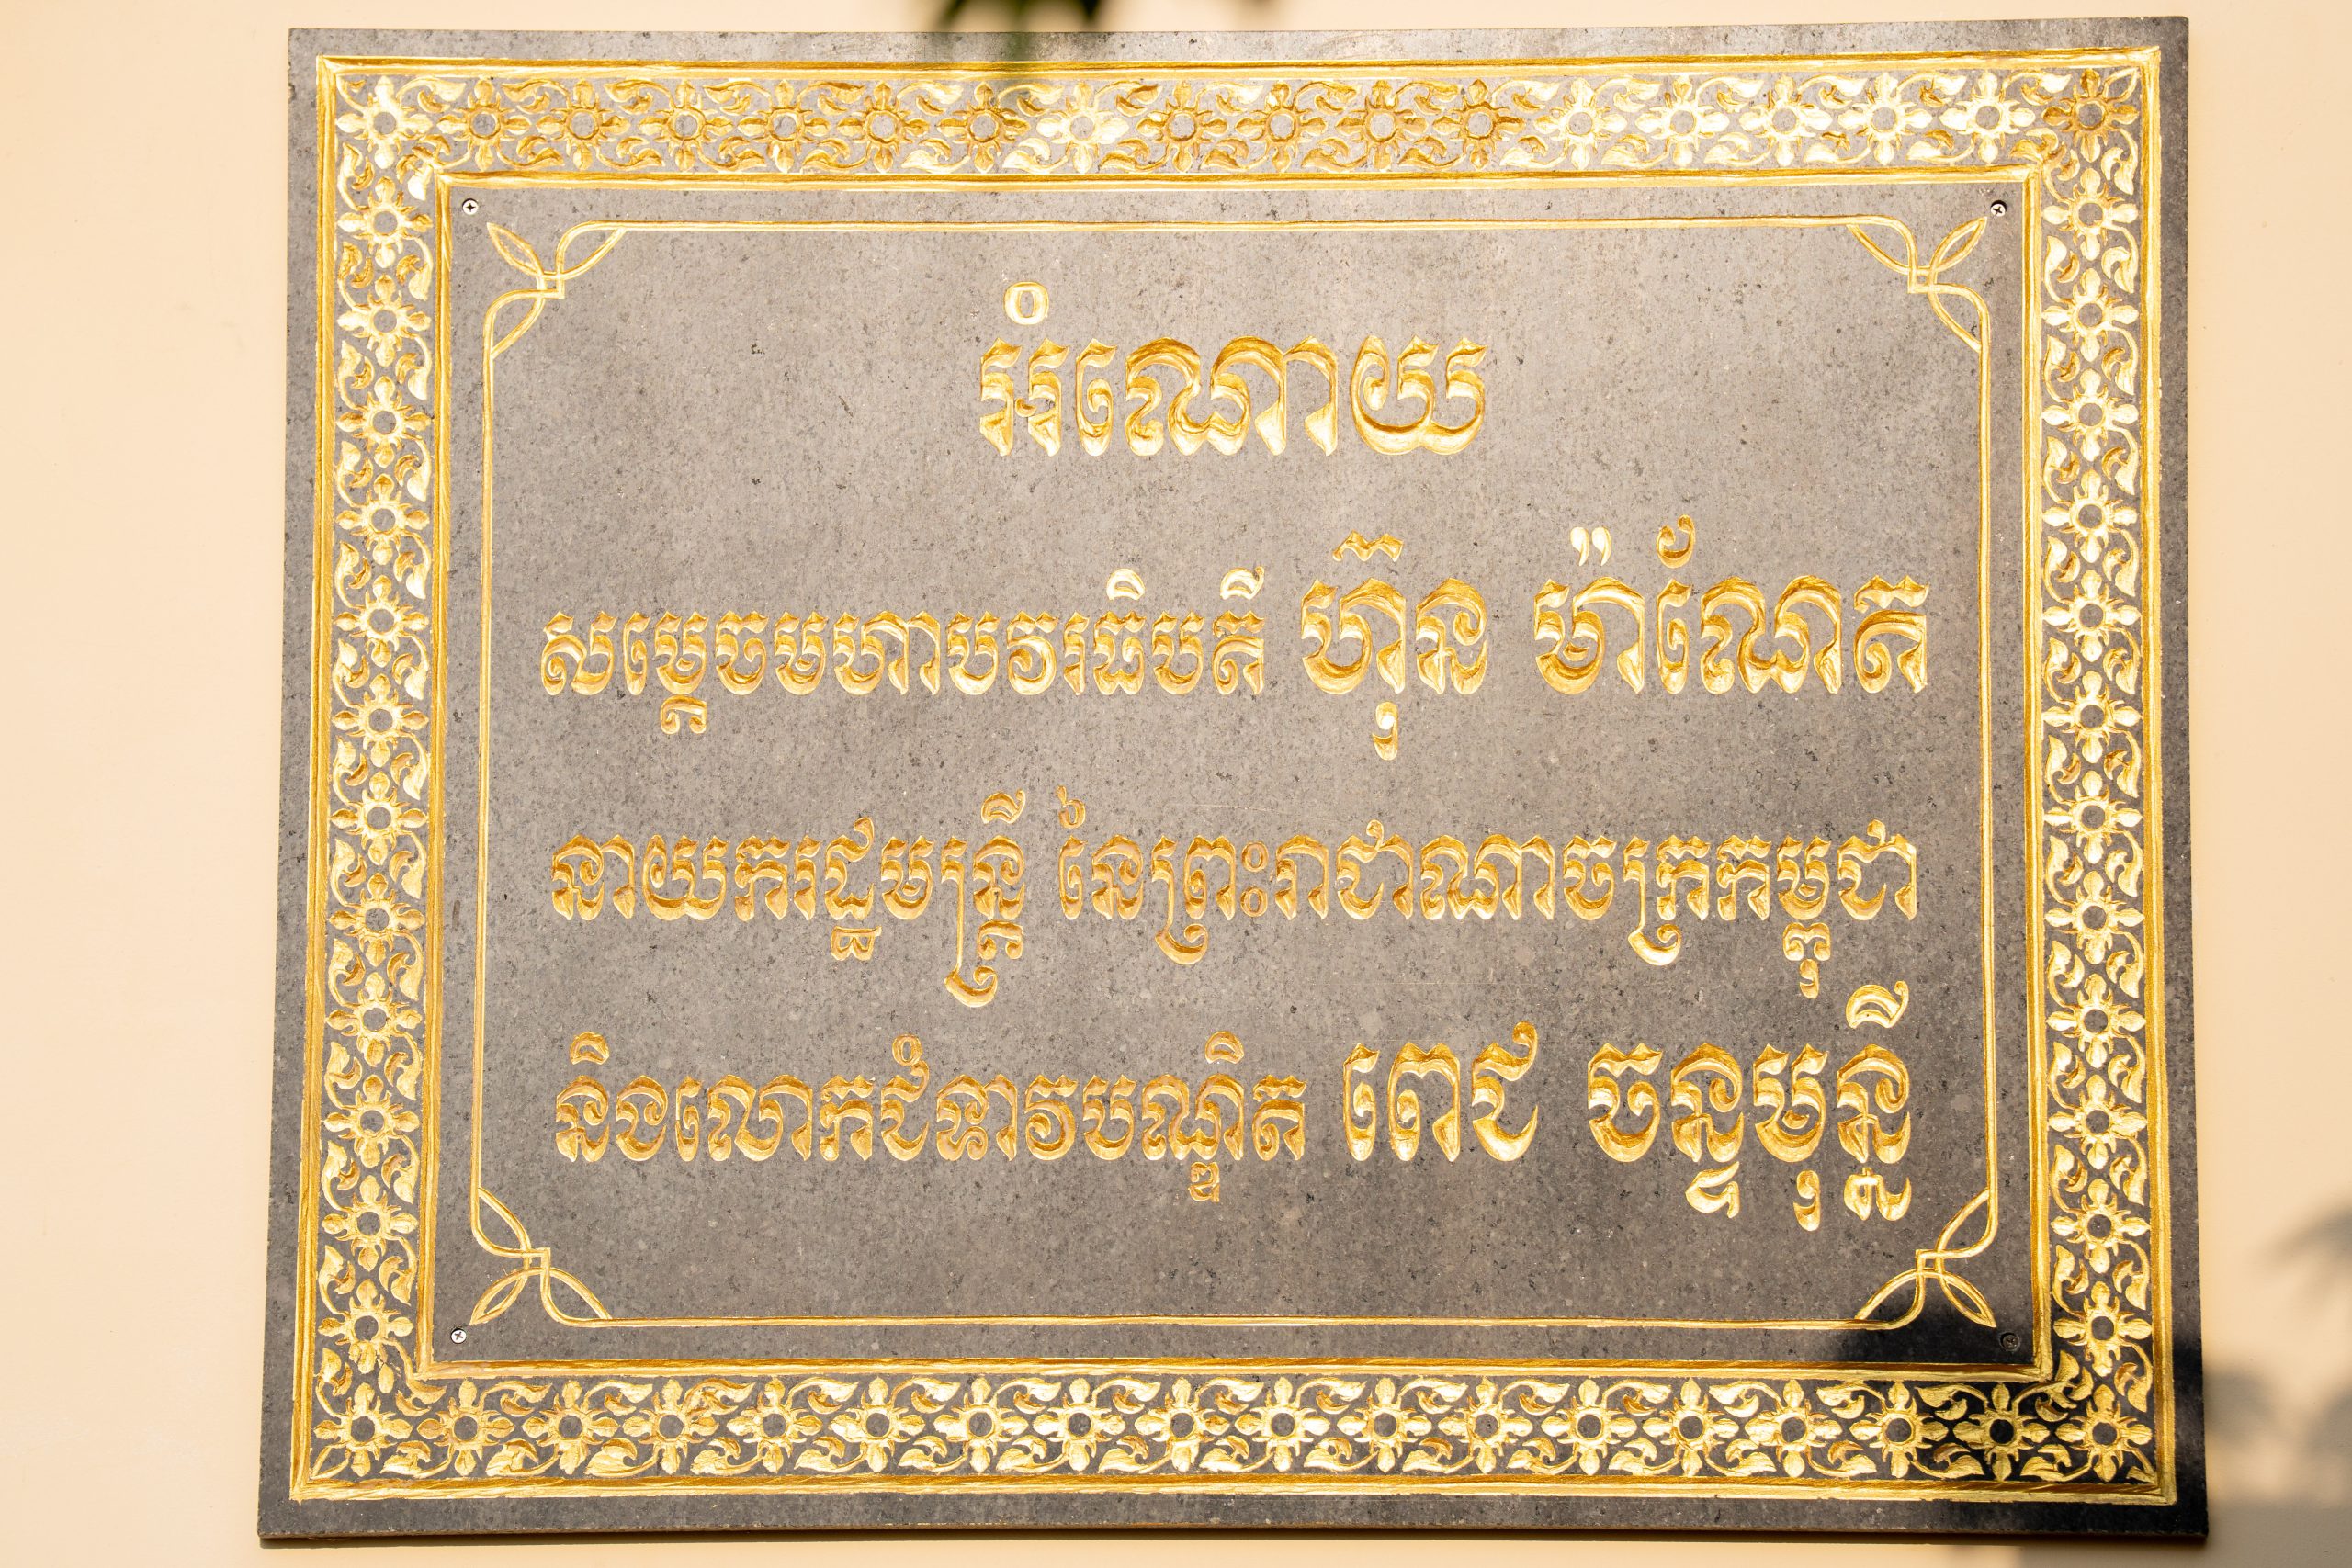 អំណោយ
សម្តេចមហាបវរធិបតី ហ៊ុន ម៉ាណែត
នាយករដ្ឋមន្ត្រី នៃព្រះរាជាណាចក្រកម្ពុជា
និងលោកជំទាវបណ្ឌិត ពេជ ចន្ទមុន្នី